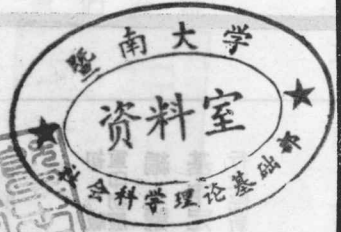 暨南大学
资料室
社会科学理论基础部